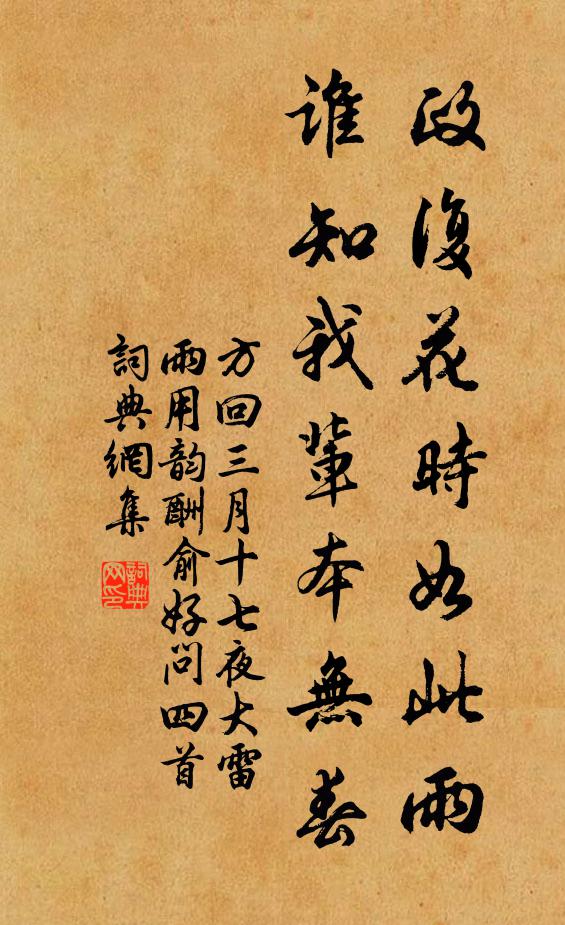 政復花時如此雨
誰知我輩本無春
方回三月十七夜大雷
雨用韵酬俞好问四首
詞典網集
詞典网印